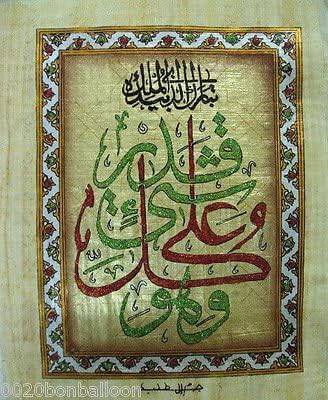 تبارك الذي بيده الملك
وهو على كل شيء قدير
0020bonballoon